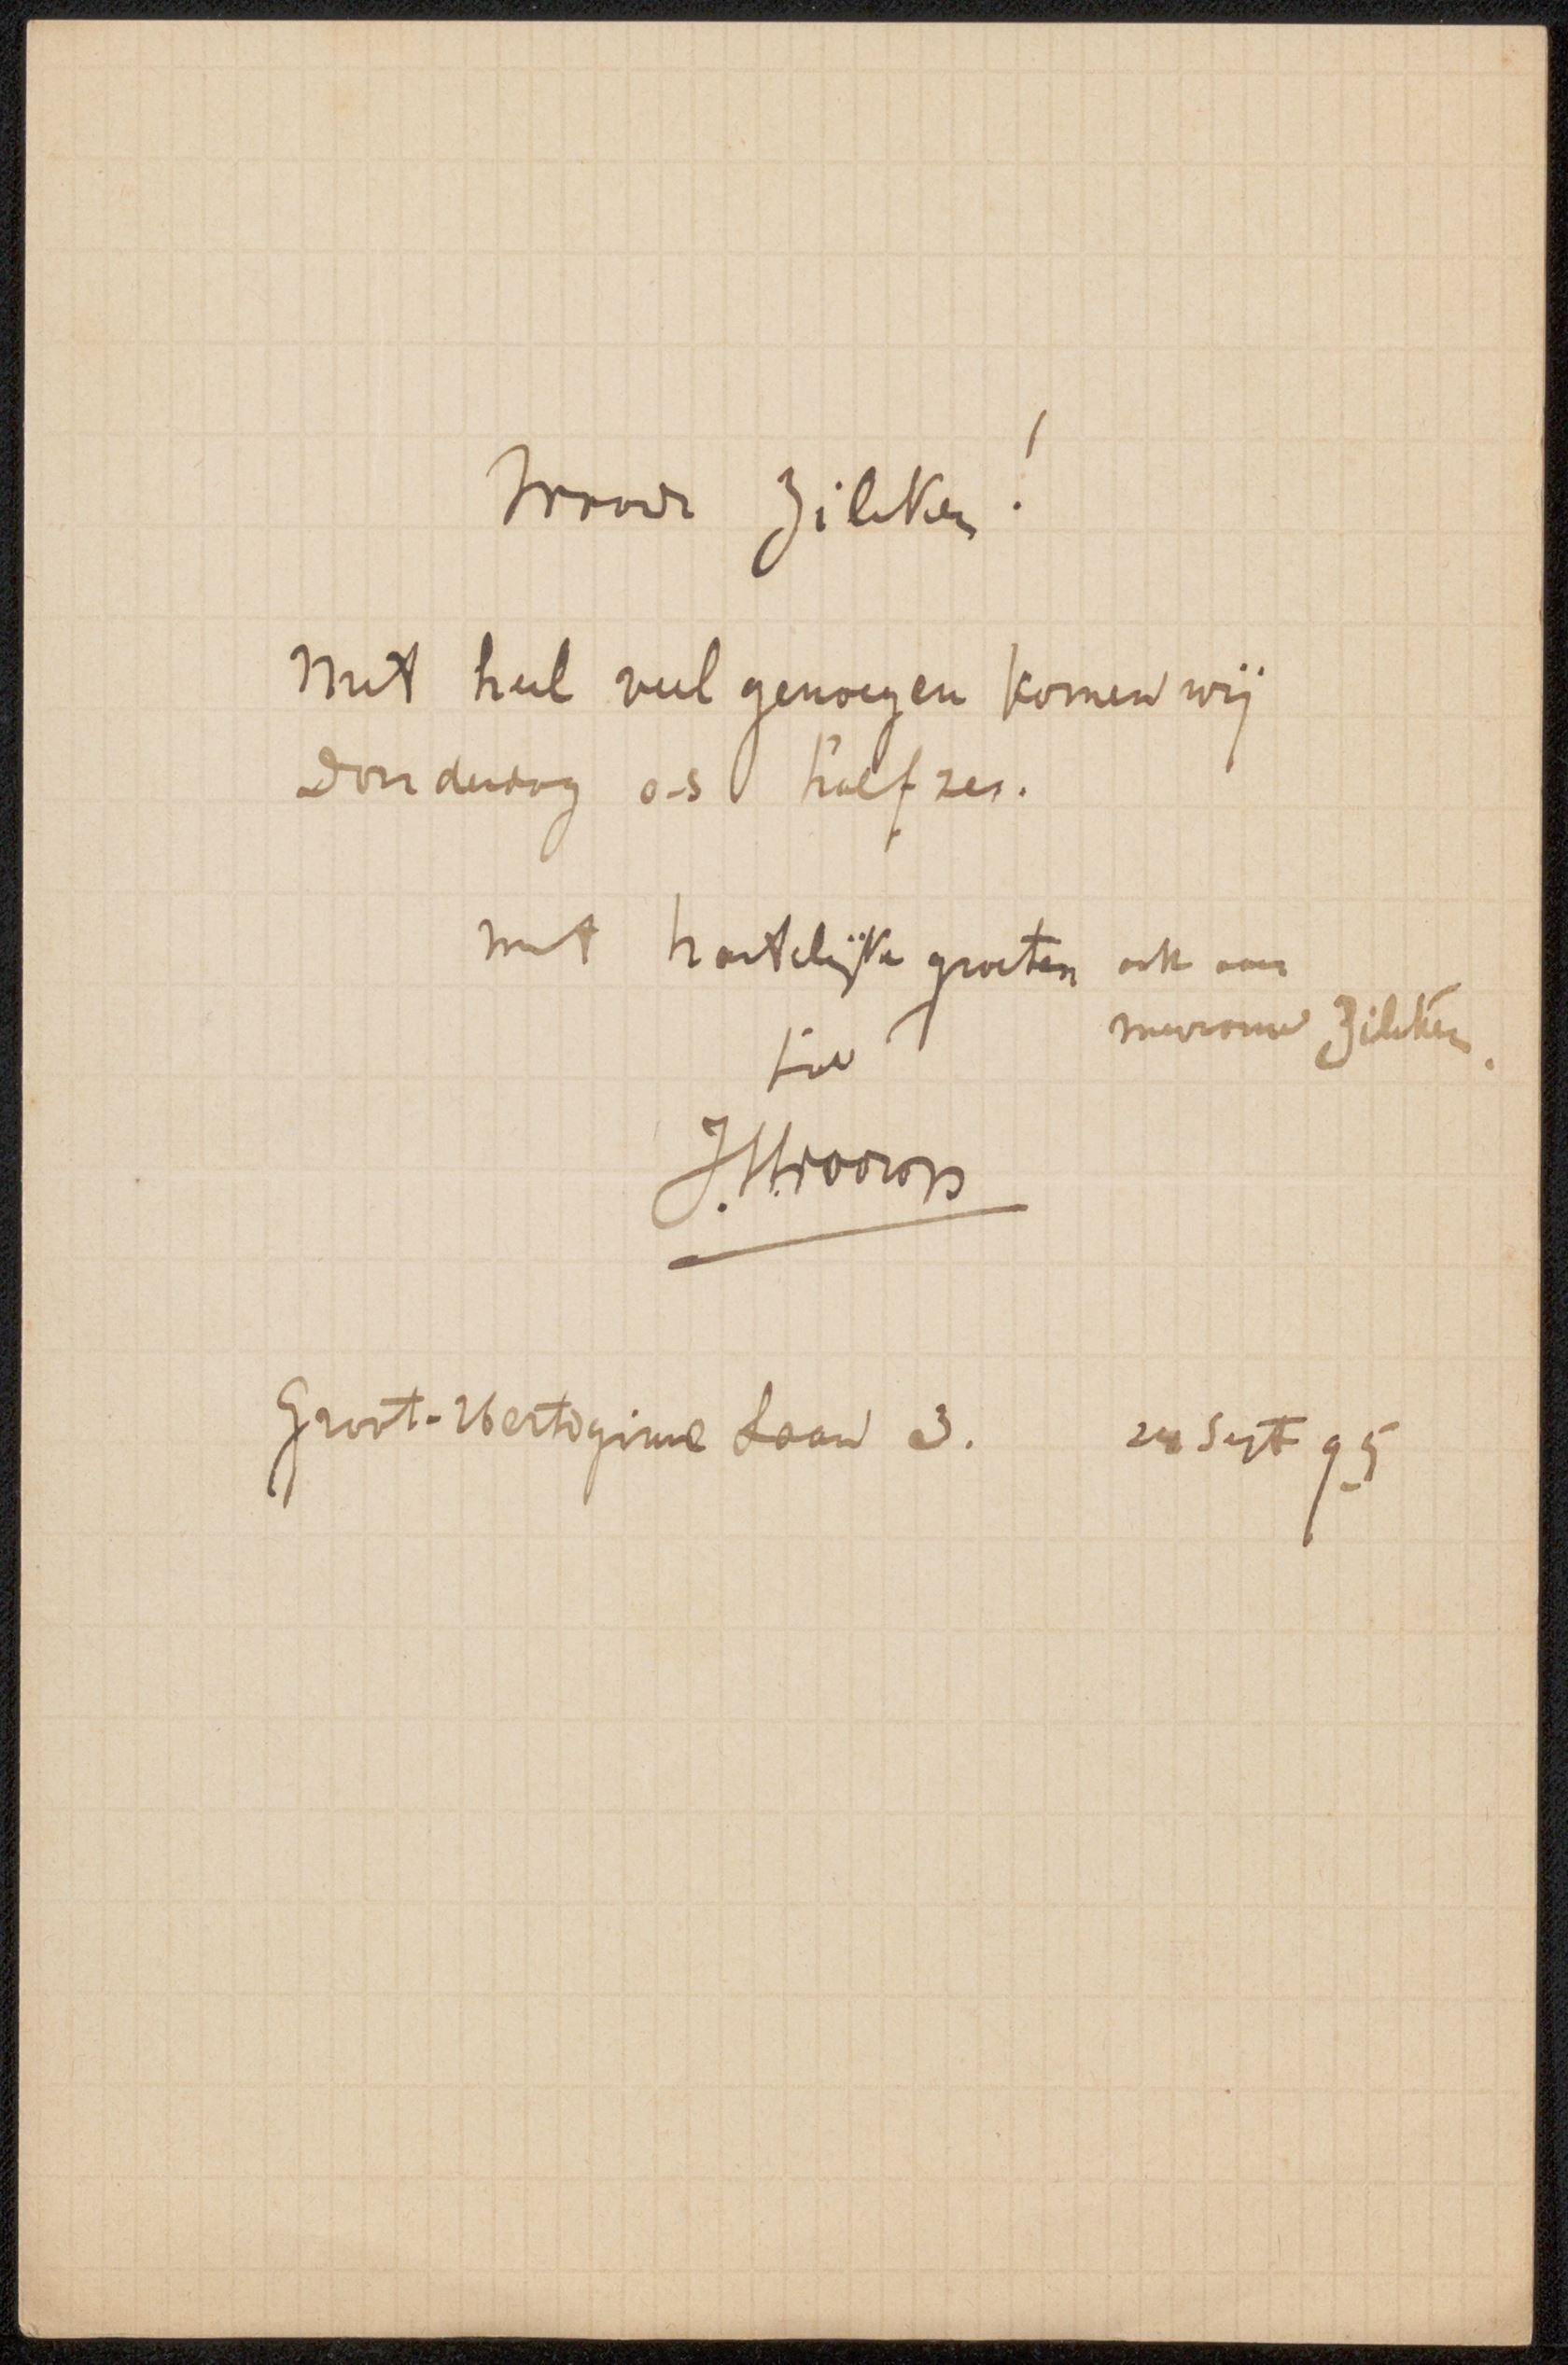 Zilcken!
Met heel veel genoegen komen wij
Donderdag a-s half zes.
Met hartelijke groeten ook aan
mevrouw Zilcken.
Groot-Hertoginne Laan 3. 24 Sept 95